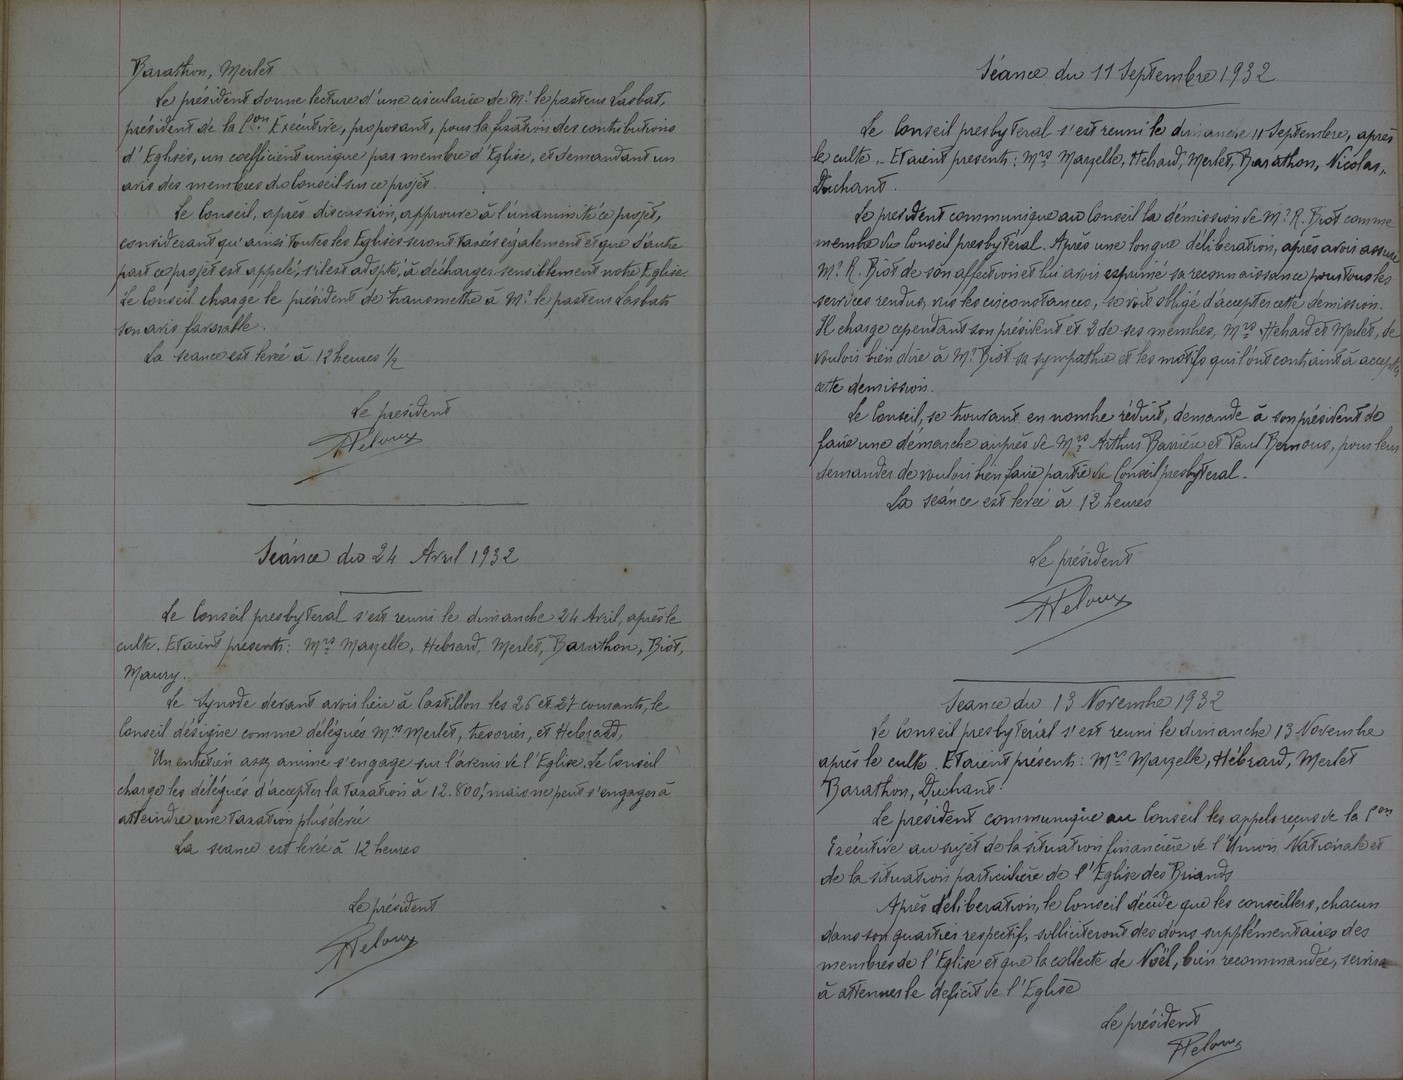 Barathon, Merlet
Le président donne lecture d'une circulaire de Mr le pasteur Lasbats,
président de la Con Exécutive, proposant, pour la fixation des contributions
d'Eglises, un coefficient unique par membre d'Eglise, et demandant un
avis des membres du Conseil sur ce projet.
Le Conseil, après discussion, approuve à l'unanimité ce projet,
considerant qu'ainsi toutes les Eglises seront taxées également et que d'autre
part ce projet est appelé, s'il est adopté, à décharger sensiblement notre Eglise.
Le Conseil charge le président de transmettre à Mr le pasteur Lasbats
son avis favorable.
La seance est levée à 12 heures 1/2
Le président
Peloux
Séance du 24 Avril 1932
Le Conseil presbyteral s'est reuni le dimanche 24 Avril, après le
culte. Etaient présents: Mrs Mazelle, Hebrard, Merlet, Barathon, Biot,
Maury.
Le Synode devant avoir lieu à Castillon les 26 et 27 courants, le
Conseil désigne comme délégués Mrs Merlet, tresorier, et Hebrard,
Un entretien assez animé s'engage sur l'avenir de l'Eglise. Le Conseil
charge les délégués d'accepter la taxation à 12.800f, mais ne peut s'engager à
atteindre une taxation plus élevée
La seance est levée à 12 heures
Le président
Peloux
Séance du 11 Septembre 1932
Le Conseil presbyteral s'est reuni le dimanche 11 Septembre, après
le culte. Etaient presents: Mrs Mazelle, Hebrard, Merlet, Barathon, Nicolas,
Duchant.
Le president communique au Conseil la démission de Mr R. Biot comme
membre du Conseil presbytéral. Après une longue délibération, après avoir assuré
Mr R. Biot de son affection et lui avoir exprimé sa reconnaissance pour tous les
services rendus, vus les circonstances, se voit obligé d'accepter cette démission.
Il charge cependant son président et 2 de ses membres, Mrs Hebrard et Merlet, de
vouloir bien dire à Mr Biot sa sympathie et les motifs qui l'ont contraint à accepter
cette démission.
Le Conseil, se trouvant en nombre réduit, demande à son président de
faire une démarche auprès de Mrs Arthur Barrière et Paul Bernous, pour leur
demander de vouloir bien faire partie du Conseil presbyteral.
La seance est levée à 12 heures
Le président
Peloux
Seance du 13 Novembre 1932
Le Conseil presbytéral s'est reuni le dimanche 13 Novembre
après le culte. Etaient présents: Mrs Mazelle, Hébrard, Merlet
Barathon, Duchant.
Le président communique au Conseil les appels reçus de la Con
Exécutive au sujet de la situation financière de l'Union Nationale et
de la situation particulière de l'Eglise des Briands
Après délibération, le Conseil décide que les conseillers, chacun
dans son quartier respectif, solliciteront des dons supplémentaires des
membres de l'Eglise et que la collecte de Noël, bien recommandée, servira
à attenuer le deficit de l'Eglise
Le président
Peloux